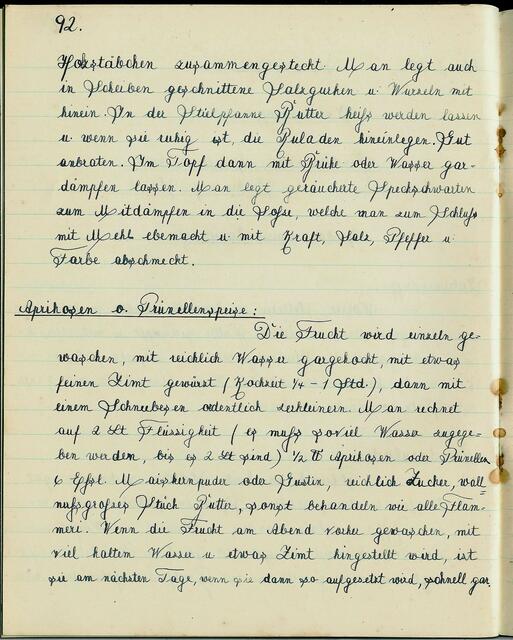 92.
Holzstäbchen zusammengesteckt. Man legt auch
in Scheiben geschnittene Salzgurken u. Wurzeln mit
hinein. In der Stielpfanne Butter heiß werden lassen
u. wenn sie ruhig ist, die Ruladen hineinlegen. Gut
anbraten. Im Topf dann mit Brühe oder Wasser gar-
dämpfen lassen. Man legt geräucherte Speckschwarten
zum Mitdämpfen in die Soße, welche man zum Schluß
mit Mehl ebemacht u. mit Kraft, Salz, Pfeffer u.
Farbe abschmeckt.
Aprikosen o. Prünellenspeise:
Die Frucht wird einzeln ge-
waschen, mit reichlich Wasser gargekocht, mit etwas
feinen Zimt gewürzt (Kochzeit ¼ - 1 Std.), dann mit
einem Schneebesen ordentlich zerkleinern. Man rechnet
auf 2 Lt Flüssigkeit (es muß soviel Wasser zugege-
ben werden, bis es 2 Lt sind) ½ ℔ Aprikosen oder Prünellen
6 Eßl. Maiskernpuder oder Gustin, reichlich Zucker, wall-
nußgroßes Stück Butter, sonst behandeln wie alle Flam-
meri. Wenn die Frucht am Abend vorher gewaschen, mit
viel kaltem Wasser u. etwas Zimt hingestellt wird, ist
sie am nächsten Tage, wenn sie dann so aufgesetzt wird, schnell gar.